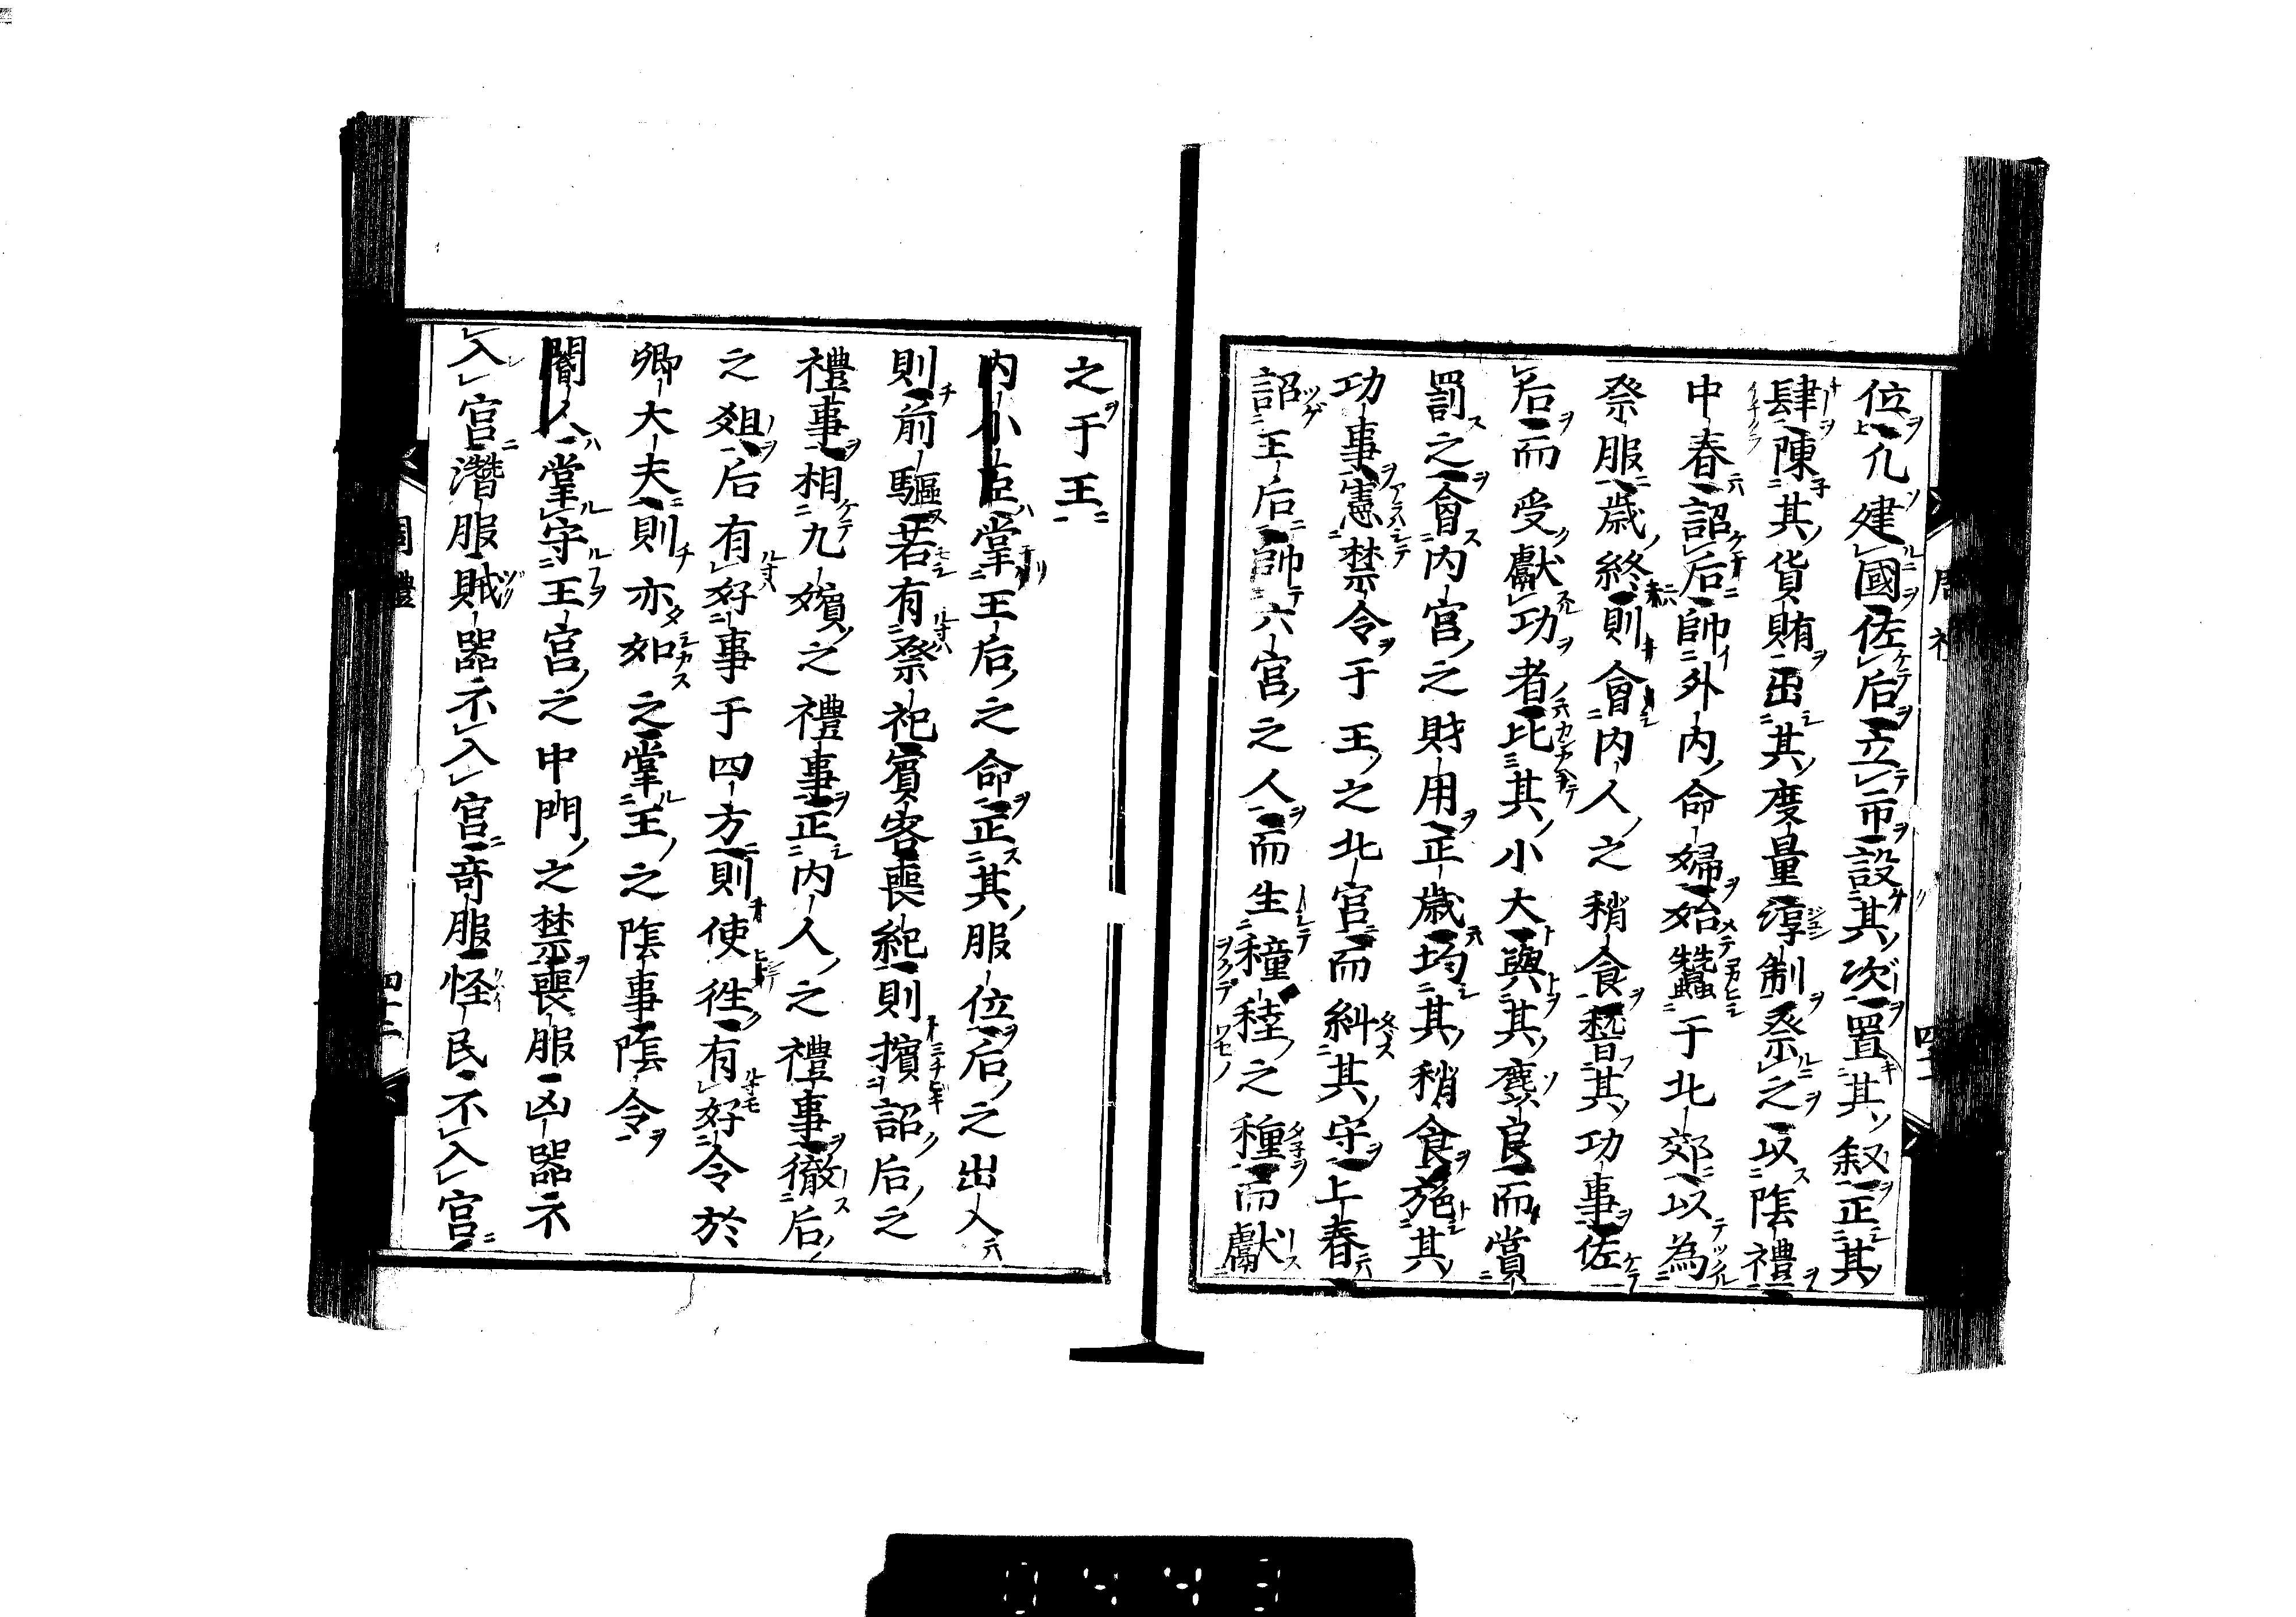 位凢建國佐后立市設其次置其叙正其
肆陳其貨賄出其度量淳制祭之以陰禮
中春詔后帥外内命婦始蠶于北郊以為
祭服歳終則會内人之稍食稽其功事佐
后而受獻功者比其小大與其麤良而賞
罰之會内官之財用正歳均其稍食施其
功事憲禁令于王之北宮而糾其守上春
詔王后帥六宮之人而生穜稑之種而獻
之于王
内小臣掌王后之命正其服位后之出入
則前驅若有祭祀賓客喪紀則擯詔后之
禮事相九嬪之禮事正内人之禮事徹后
之俎后有好事于四方則使徃有好令於
卿大夫則亦如之掌王之陰事陰令
閽人掌守王宮之中門之禁喪服凶器不
入宮潛服賊器不入宮奇服怪民不入宮
周禮
四十二
0443